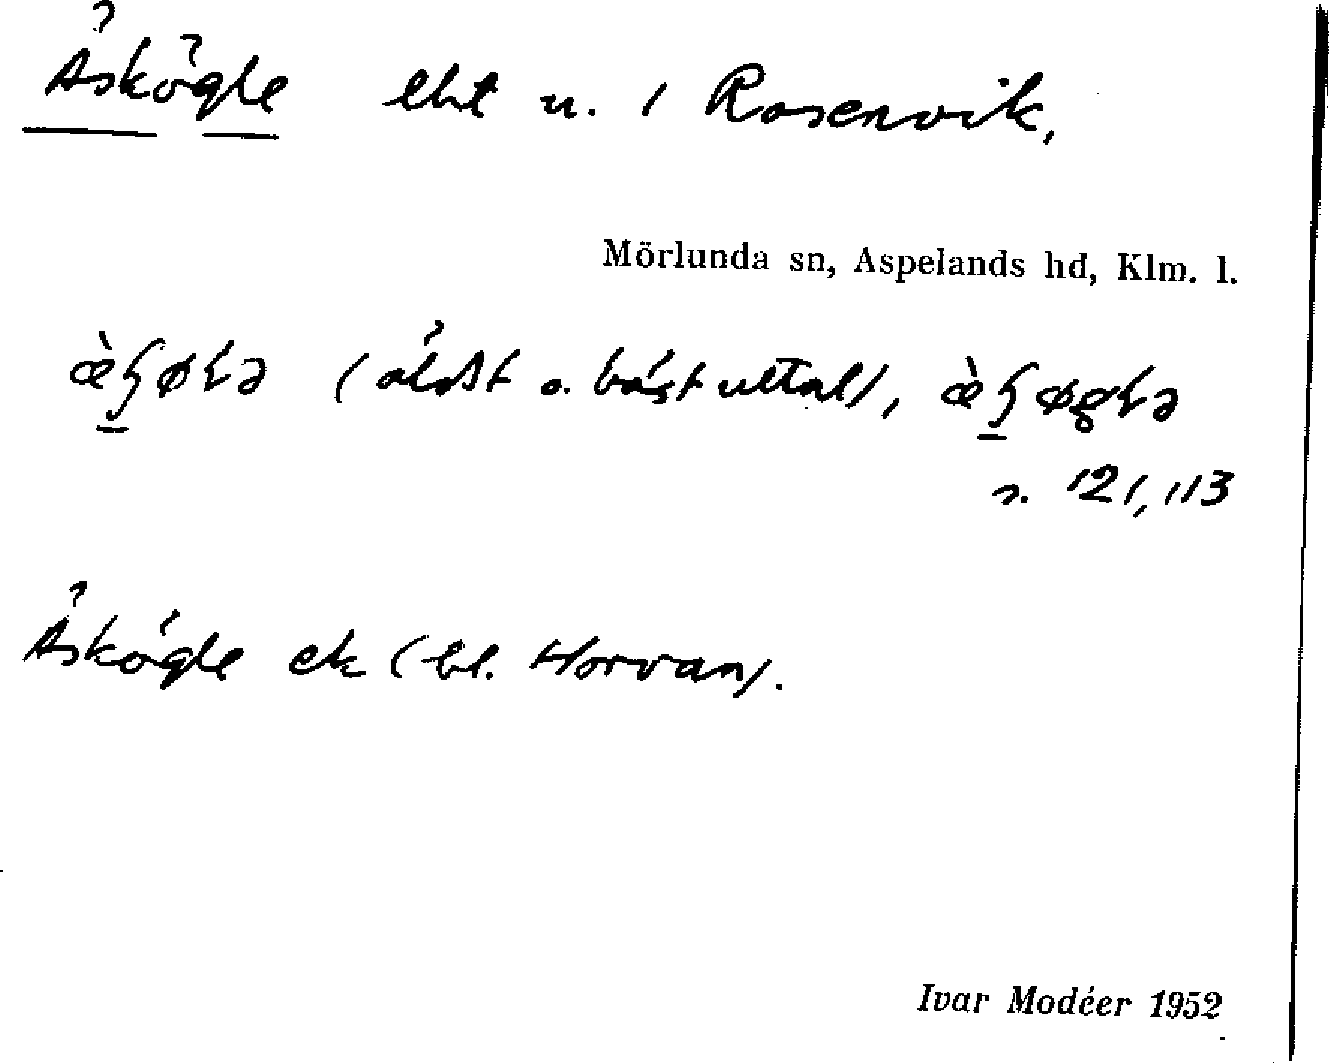 Äskögle lht u. / Rosenvik,
Mörlunda sn, Aspelands hd, Klm. l.
(äldst o. bäst uttal),
s. 121, 113
Äskögle ek (bl. Horvan).
Ivar Modéer 1952